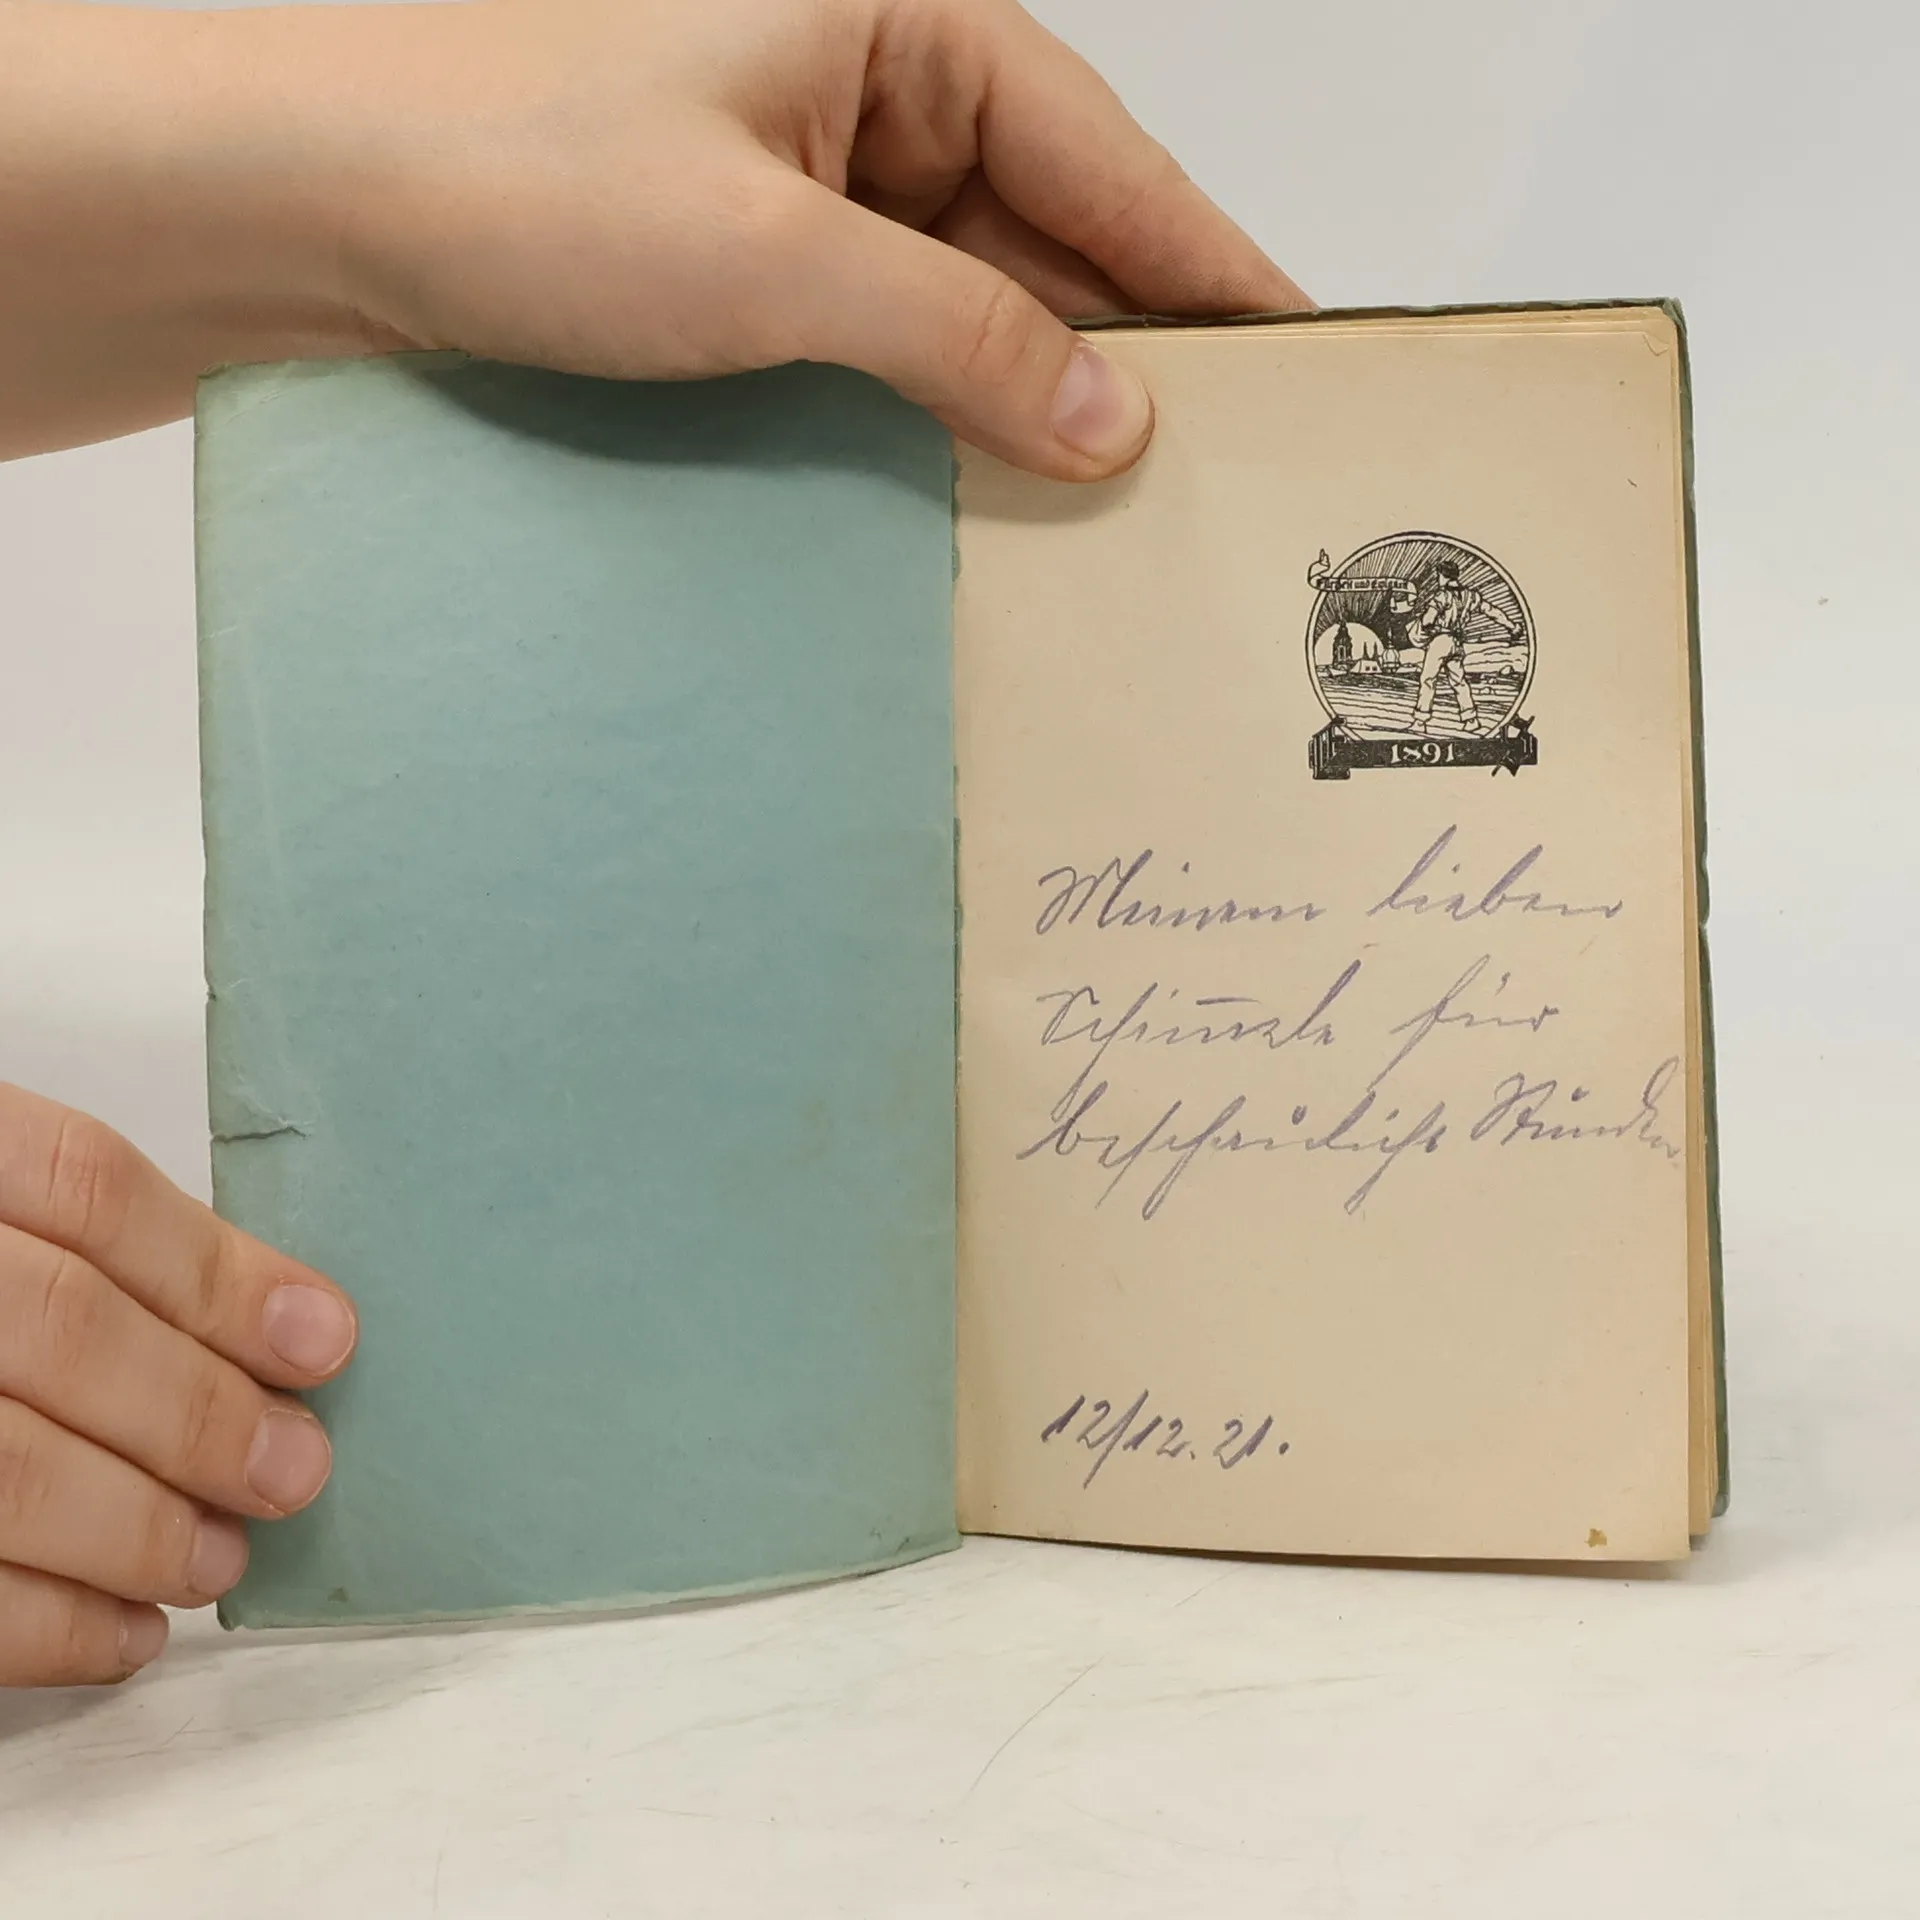 1891
Meinem lieben
für
beschauliche Stunden
12/12. 21.